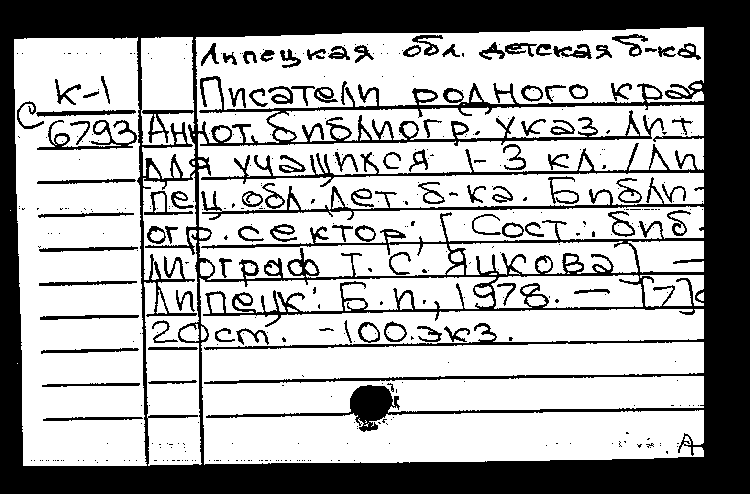 Липецкая обл. детская б-ка
К-1 Писатели родного края
С 6793 Аннот. библиогр. указ. лит
для учащихся 1-3 кл. /Ли
пец. обл. дет. б-ка. Библи-
огр. сектор; [Сост.: биб-
лиограф Т. С. Яцкова] —
Липецк: Б.п., 1978. — [7]с
20 ст. -100.экз.